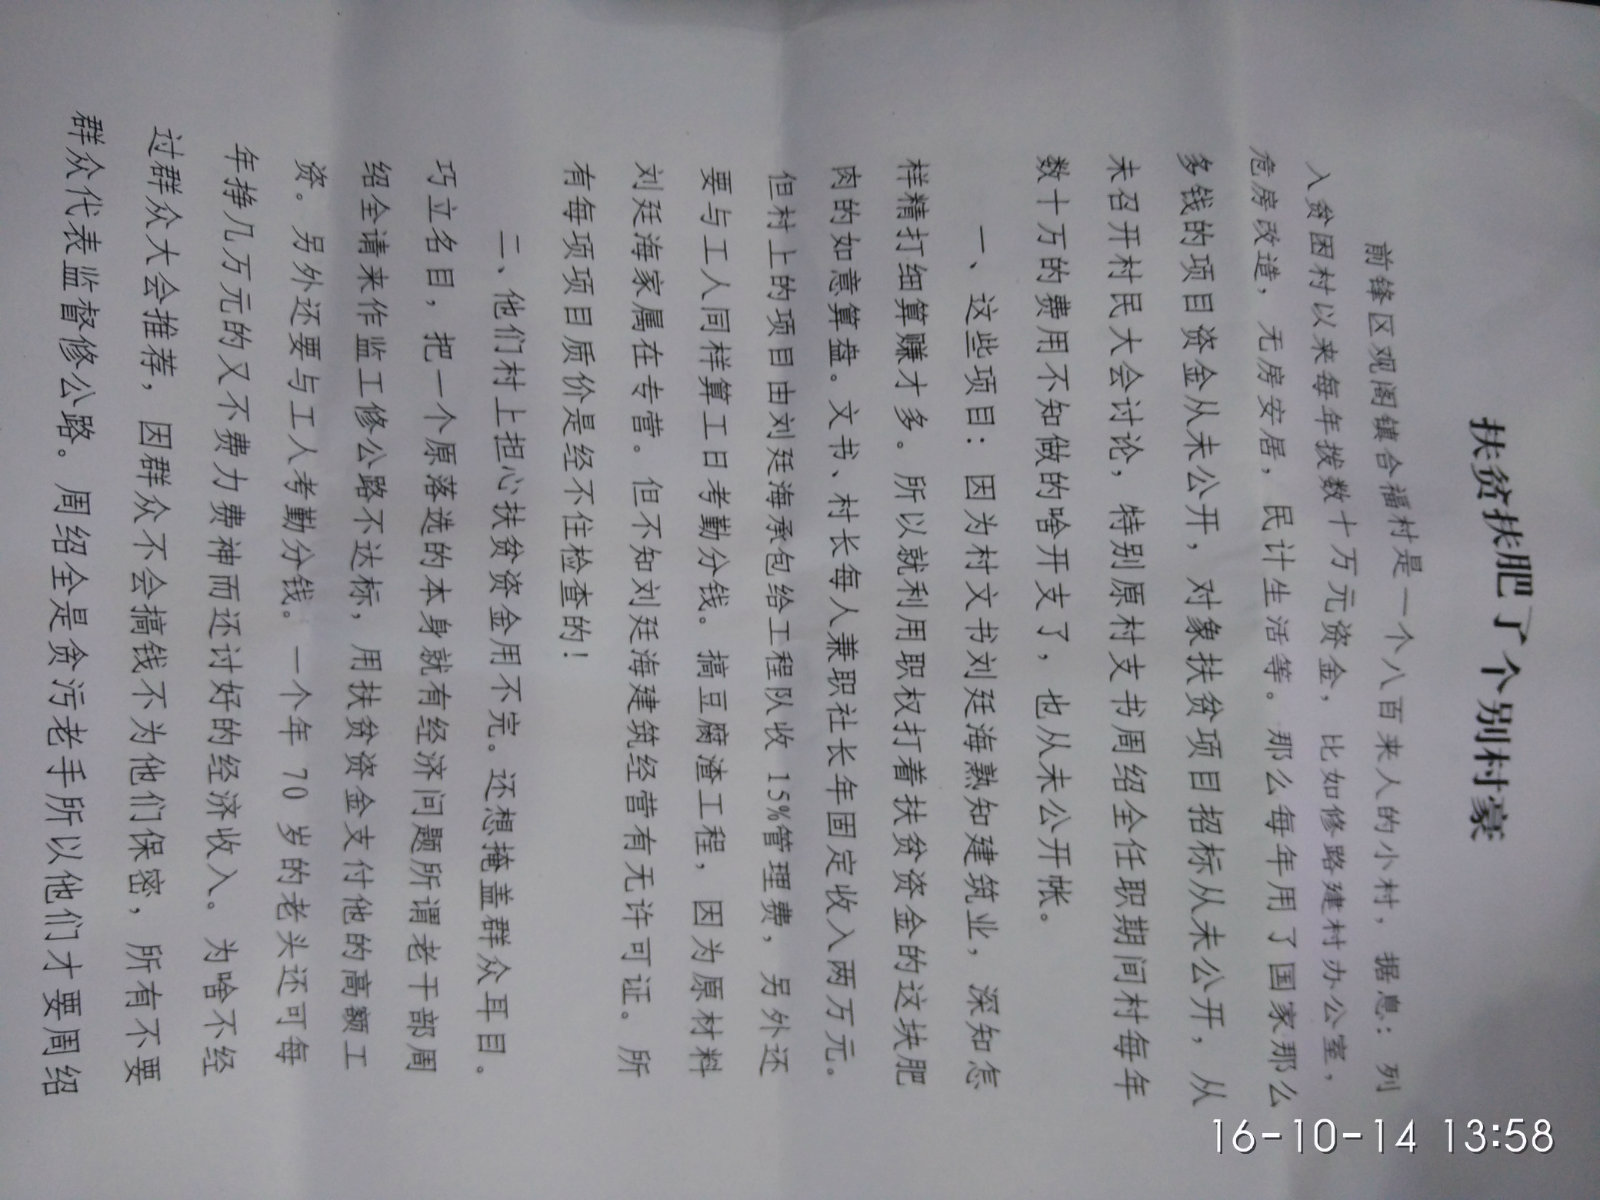 扶贫扶肥了个别村豪
前锋区观阁镇合福村是一个八百来人的小村，据息：列
入贫困村以来每年拨数十万元资金，比如修路建村办公室，
危房改造，无房安居，民计生活等。那么每年用了国家那么
多钱的项目资金从未公开，对象扶贫项目招标从未公开，从
未召开村民大会讨论，特别原村支书周绍全任职期间村每年
数十万的费用不知做的啥开支了，也从未公开帐。
一、这些项目：因为村文书刘廷海熟知建筑业，深知怎
样精打细算赚才多。所以就利用职权打着扶贫资金的这块肥
肉的如意算盘。文书、村长每人兼职社长年固定收入两万元。
但村上的项目由刘廷海承包给工程队收 15%管理费，另外还
要与工人同样算工日考勤分钱。搞豆腐渣工程，因为原材料
刘廷海家属在专营。但不知刘廷海建筑经营有无许可证。所
有每项项目质价是经不住检查的！
二、他们村上担心扶贫资金用不完。还想掩盖群众耳目。
巧立名目，把一个原落选的本身就有经济问题所谓老干部周
绍全请来作监工修公路不达标，用扶贫资金支付他的高额工
资。另外还要与工人考勤分钱。一个年 70 岁的老头还可每
年挣几万元的又不费力费神而还讨好的经济收入。为啥不经
过群众大会推荐，因群众不会搞钱不为他们保密，所有不要
群众代表监督修公路。周绍全是贪污老手所以他们才要周绍
16-10-14 13:58